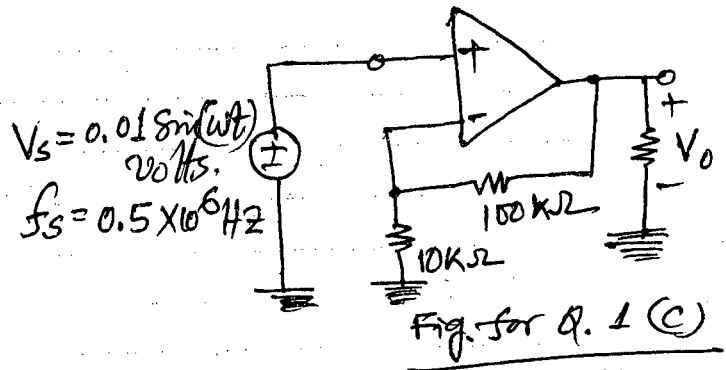 Vs = 0.01 Sin(ωt)
volts.
fs = 0.5 X10⁶ HZ
±
+
-
100KΩ
10KΩ
+
Vo
-
Fig. for Q. 1 (C)